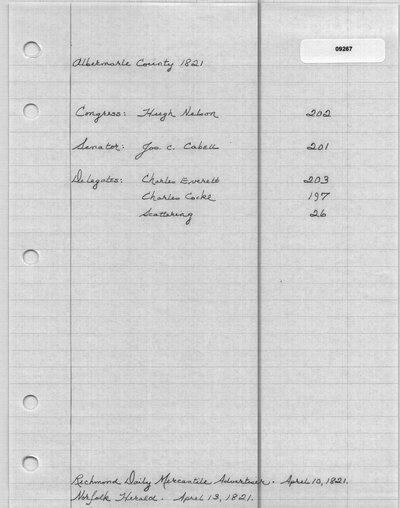 09267
Albermarle County 1821
Congress: Hugh Nelson 202
Senator: Jos. C. Cabell 201
Delegates: Charles Everett 203
Charles Cocke 197
Scattering 26
Richmond Daily Mercantile Advertiser. April 10, 1821.
Norfolk Herald. April 13, 1821.